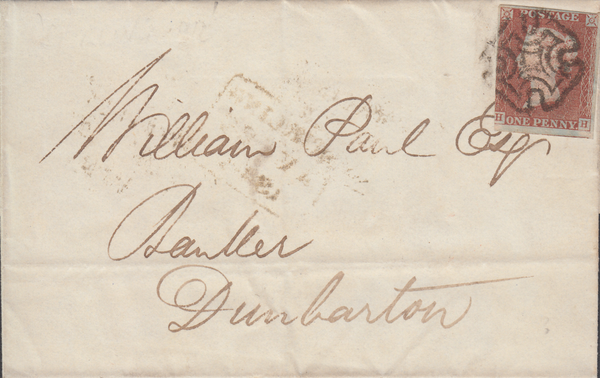 POSTAGE
H ONE PENNY B
William Paul Esq
Banker
Dunbarton